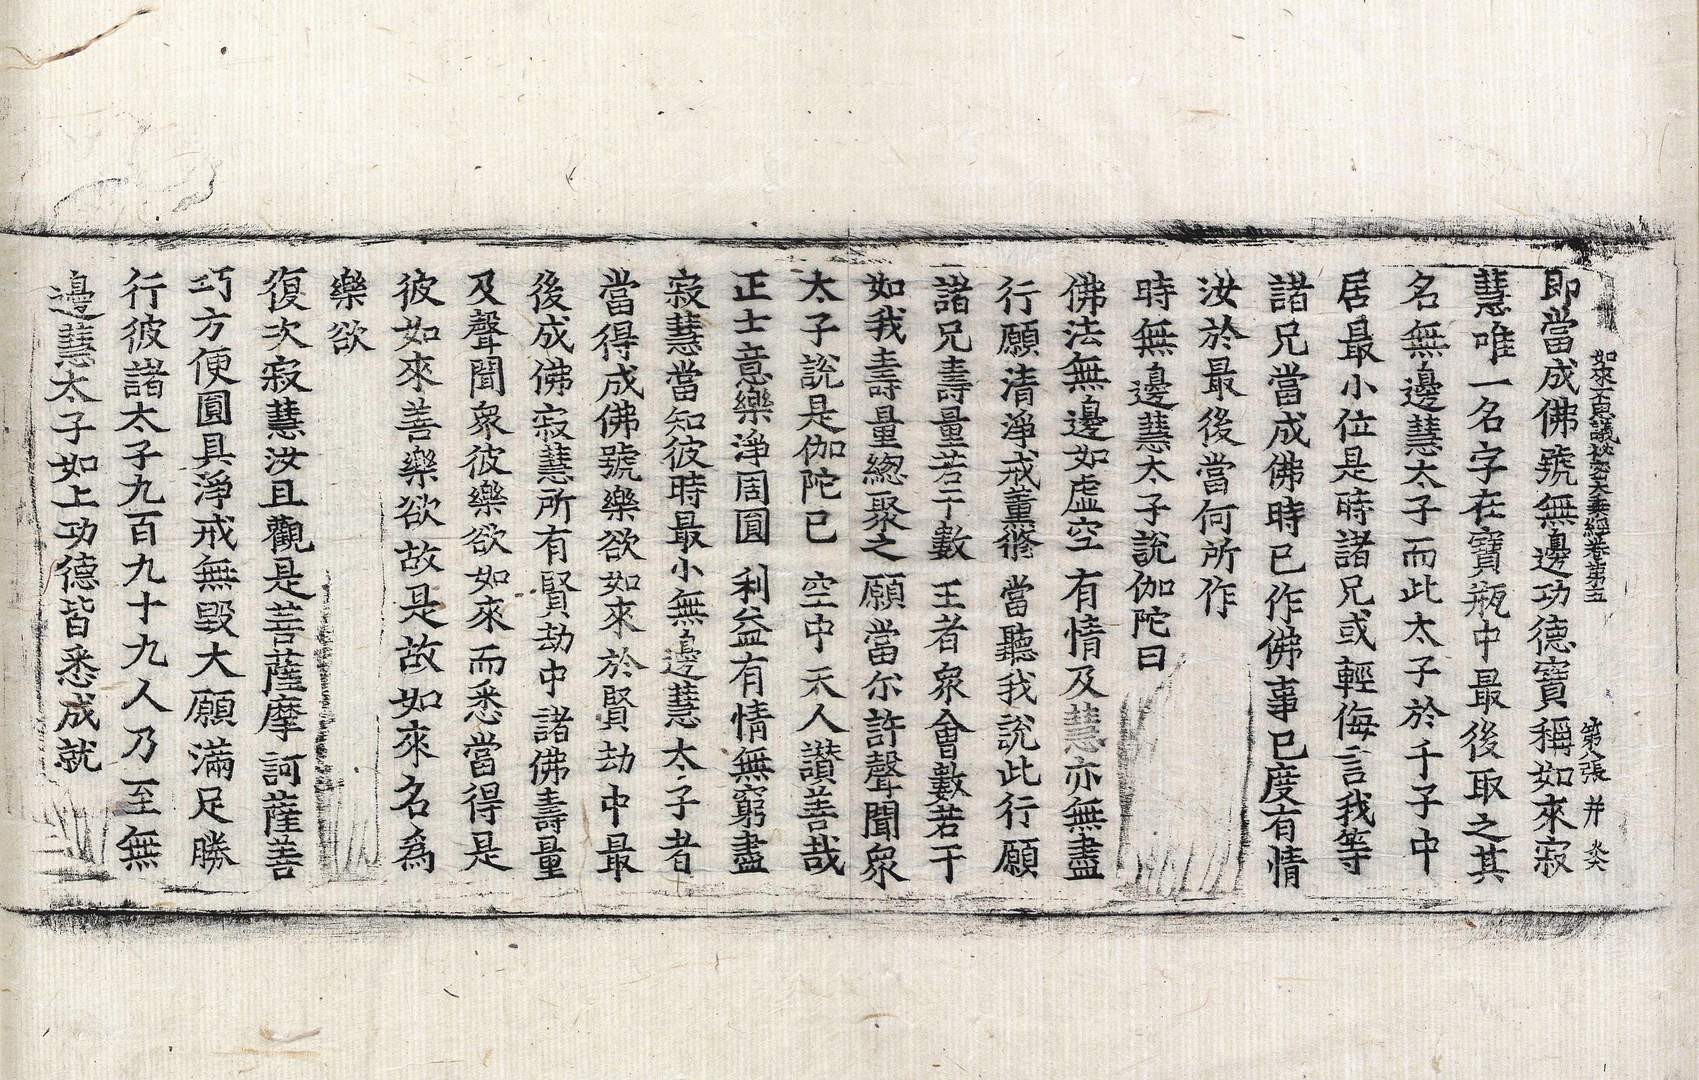 如來不思議秘密大乘經卷第五 第八張 井
即當成佛號無邊功德寶稱如來寂
慧唯一名字在寶瓶中最後取之其
名無邊慧太子而此太子於千子中
居最小位是時諸兄或輕侮言我等
諸兄當成佛時已作佛事已度有情
汝於最後當何所作
時無邊慧太子說伽陀曰
佛法無邊如虛空 有情及慧亦無盡
行願清淨戒薰修 當聽我說此行願
諸兄壽量若干數 王者衆會數若干
如我壽量緫聚之 願當尒許聲聞衆
太子說是伽陀已 空中天人讃善哉
正士意樂淨周圓 利益有情無窮盡
寂慧當知彼時最小無邊慧太子者
當得成佛號樂欲如來於賢劫中最
後成佛寂慧所有賢劫中諸佛壽量
及聲聞衆彼樂欲如來而悉當得是
彼如來善樂欲故是故如來名爲
樂欲
復次寂慧汝且觀是菩薩摩訶薩善
巧方便圓具淨戒無毀大願滿足勝
行彼諸太子九百九十九人乃至無
邊慧太子如上功德皆悉成就